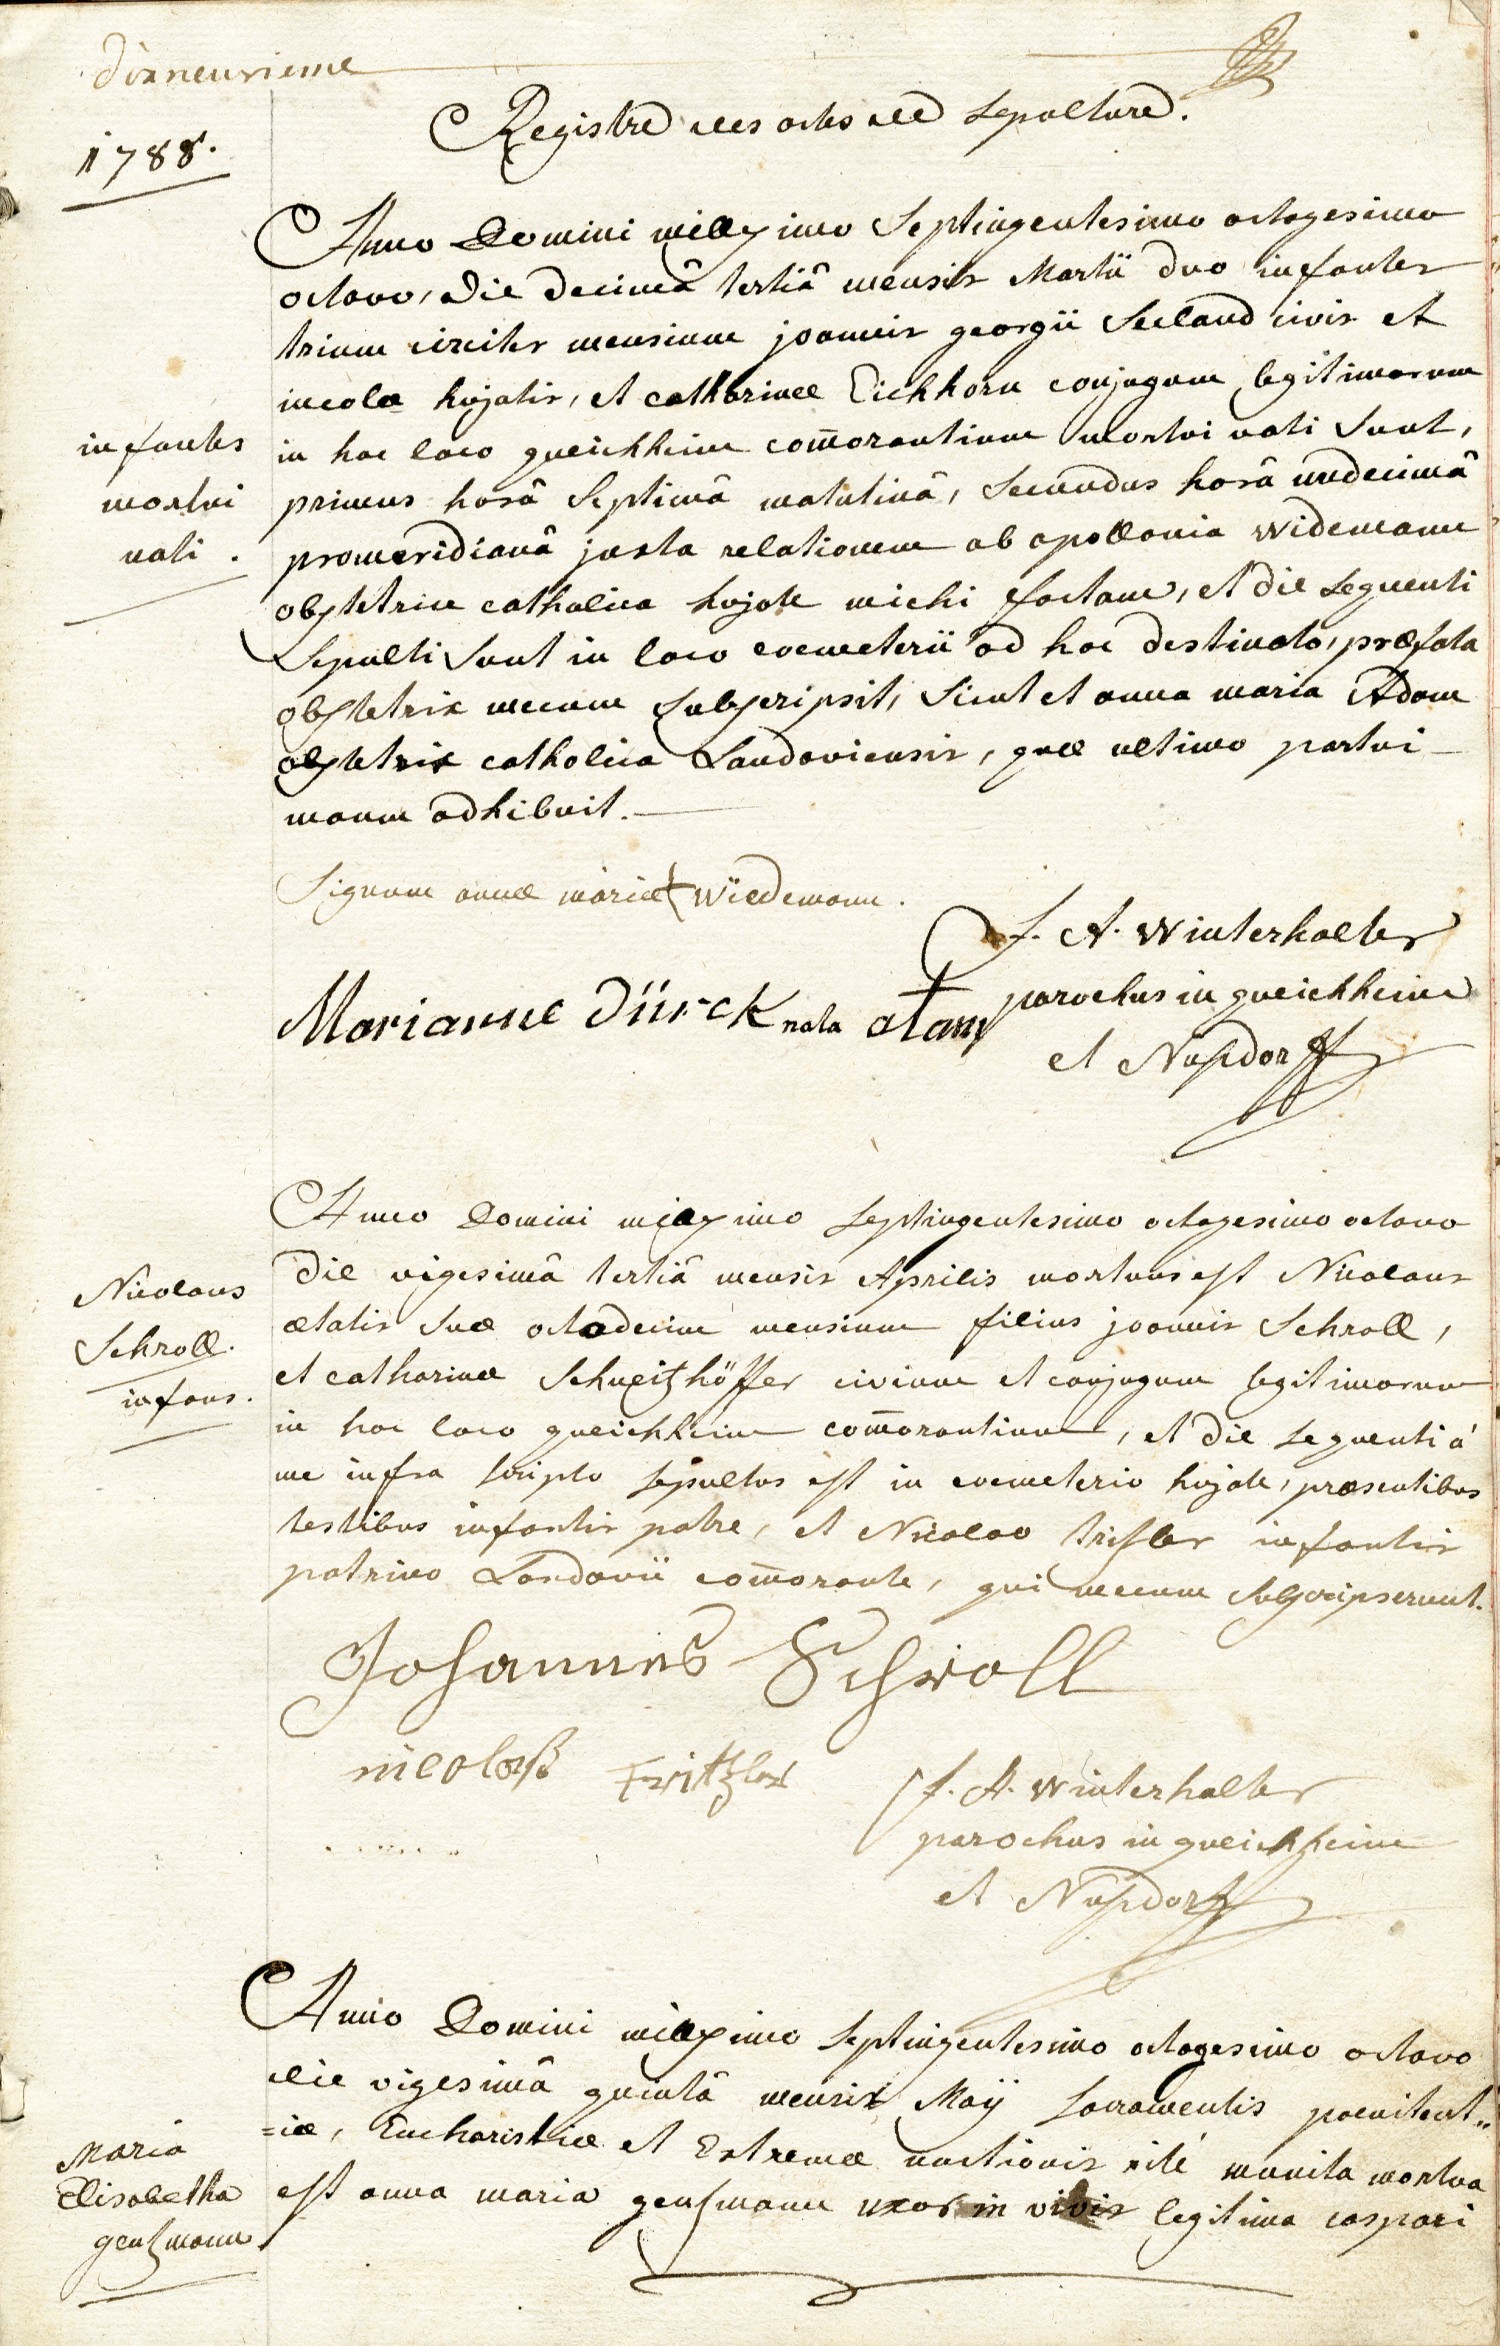 dixneuvieme
Registre des actes de sepulture.
1788.
Anno Domini millesimo septingentesimo octogesimo
octavo, die decimâ tertiâ mensis Martii duo infantes
trium circiter mensium joannis georgii Seeland civis et
incolæ hujatis, et catharinæ Eichhorn conjugum legitimorum
in hoc loco queichheim com̄orantium mortui nati sunt,
primus horâ septimâ matutinâ, secundus horâ undecimâ
promeridianâ juxta relationem ab apollonia Widemann
obstetrice catholica hujate michi factam, et die sequenti
sepulti sunt in loco coemeterii ad hoc destinato, præfata
obstetrix mecum subscripsit, sicut et anna maria Adam
obstetrix catholica Landaviensis, quæ ultimo partui
manum adhibuit.
infantes
mortui
nati.
Signum annæ mariæ + Wiedemann.
Marianne Dürck nata atam
f. A. Winterhalter
parochus in queichheim
et Nusdorff
Anno Domini millesimo septingentesimo octogesimo octavo
die vigesimâ tertiâ mensis Aprilis mortuus est Nicolaus
ætatis suæ octodecim mensium filius joannis Schroll,
et catharinæ Schweitzhöffer civium et conjugum legitimorum
in hoc loco queichheim com̄orantium, et die sequenti á
me infra scripto sepultus est in coemeterio hujate, præsentibus
testibus infantis patre, et Nicolao trisler infantis
patrino Landavii com̄orante, qui mecum subscripserunt.
Nicolaus
Schroll.
infans.
Johannes Schroll
nicolaß Fritzler
f. A. Winterhalter
parochus in queichheim
et Nusdorff
Anno Domini millesimo septingentesimo octogesimo octavo
die vigesimâ quintâ mensis Maÿ sacramentis poenitent=
=iæ, Eucharistiæ et Extremæ unctionis rité munita mortua
est anna maria gensmann uxor in vivis legitima caspari
Maria
Elisabetha
gensmann